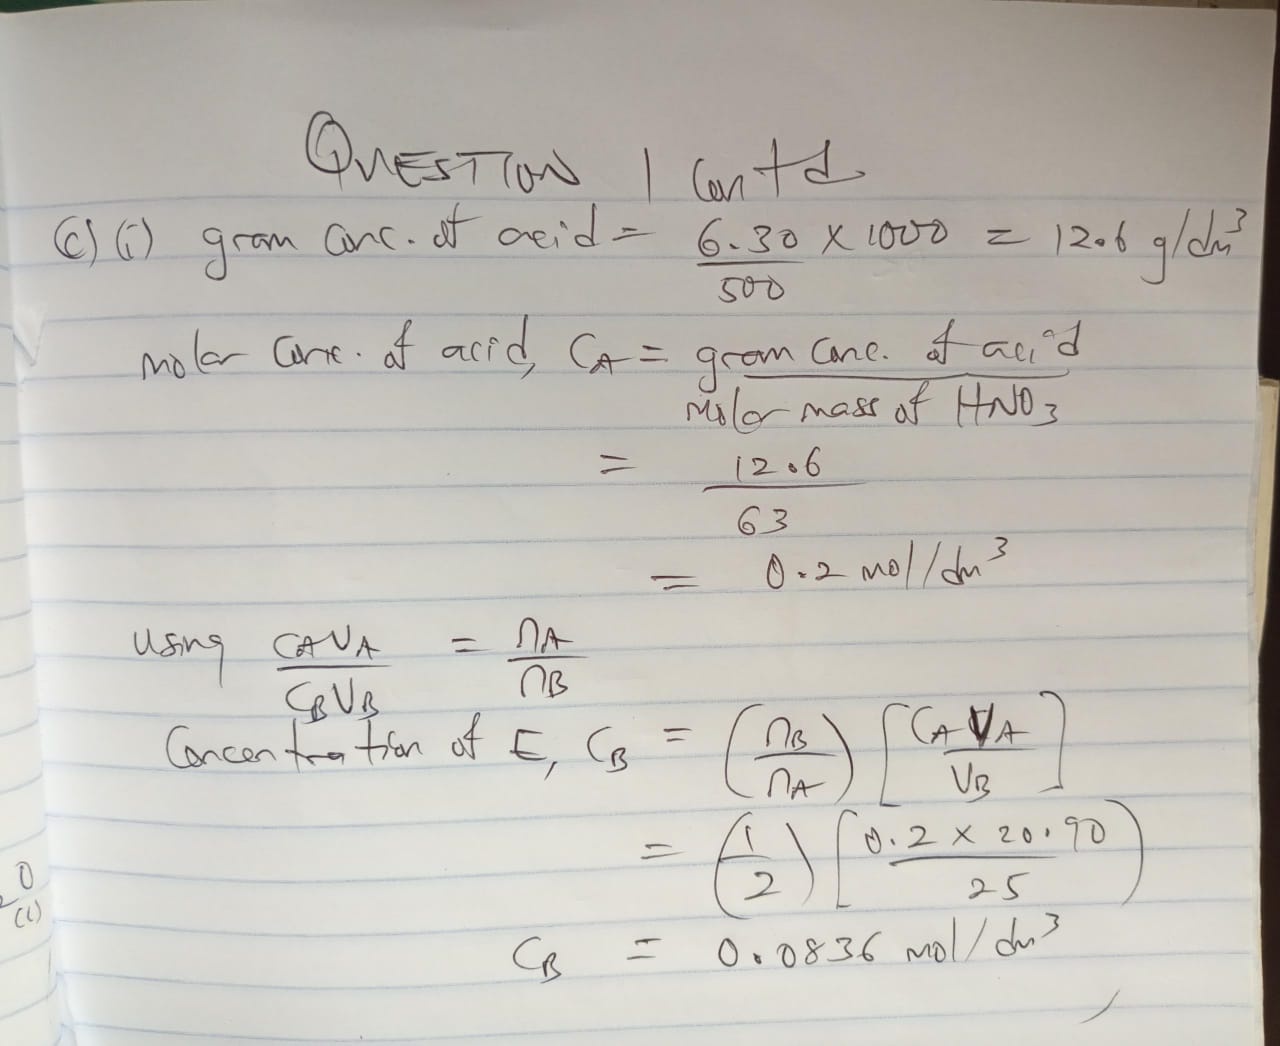 QUESTION 1 Contd
(c) (i) gram conc. of acid = 6.30 × 1000 = 12.6 g/dm³
500
molar conc. of acid, CA = gram conc. of acid
Molar mass of HNO3
= 12.6
63
= 0.2 mol/dm³
Using CAVA = nA
CBVB nB
Concentration of E, CB = (nB/nA) [CAVA/VB]
= (1/2) [0.2 × 20.90/25]
CB = 0.0836 mol/dm³
0
(l)